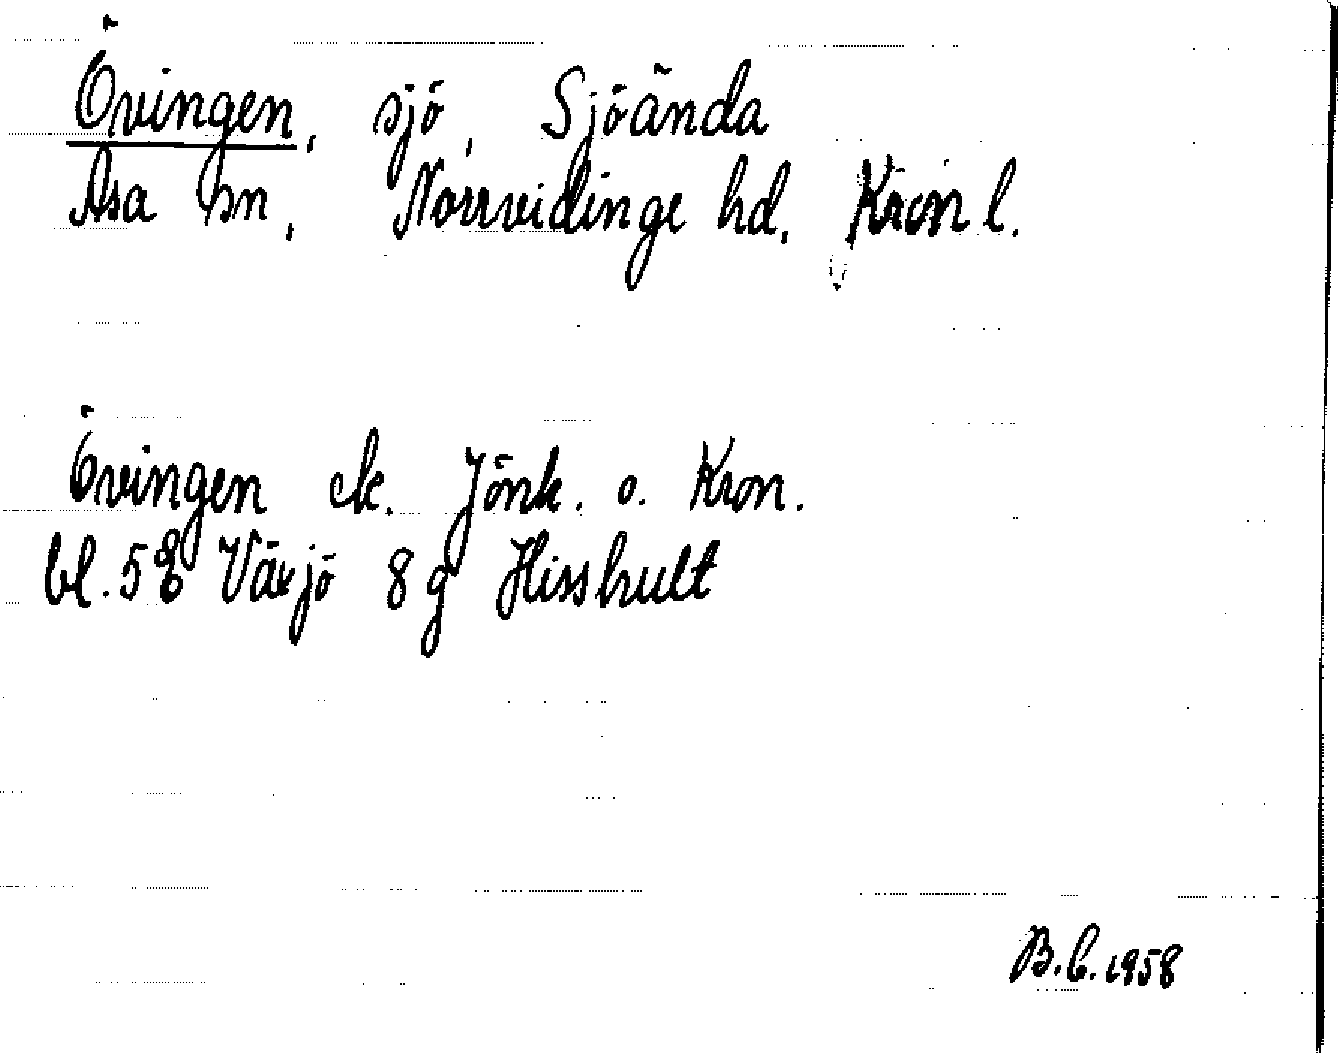 Övingen, sjö, Sjöända
Asa sn, Norrvidinge hd. Kron l.
Övingen ek. Jönk. o. Kron.
bl. 5E Växjö 8g Hisshult
B.C. 1958